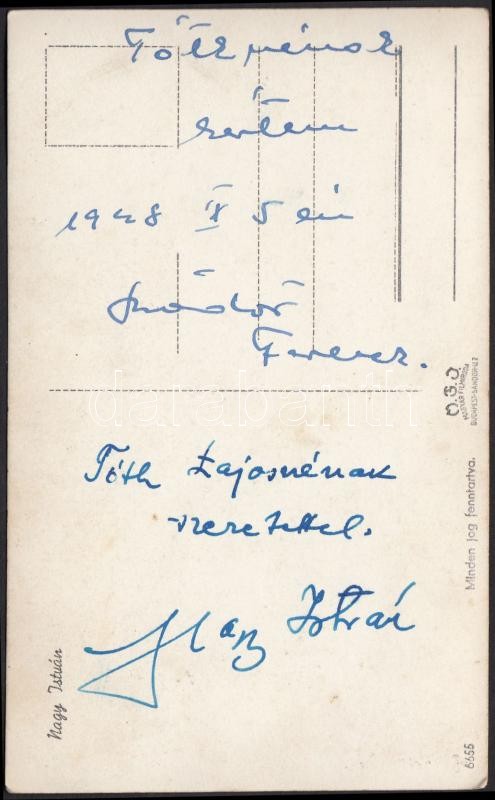 Tóthnénak
1948 IX 5 én
Ferenc.
Tóth Lajosnénak
szeretettel.
Nagy István
Nagy István
O.G.O.
MAGYAR FILMIRODA
Minden jog fenntartva.
6655
darabanth